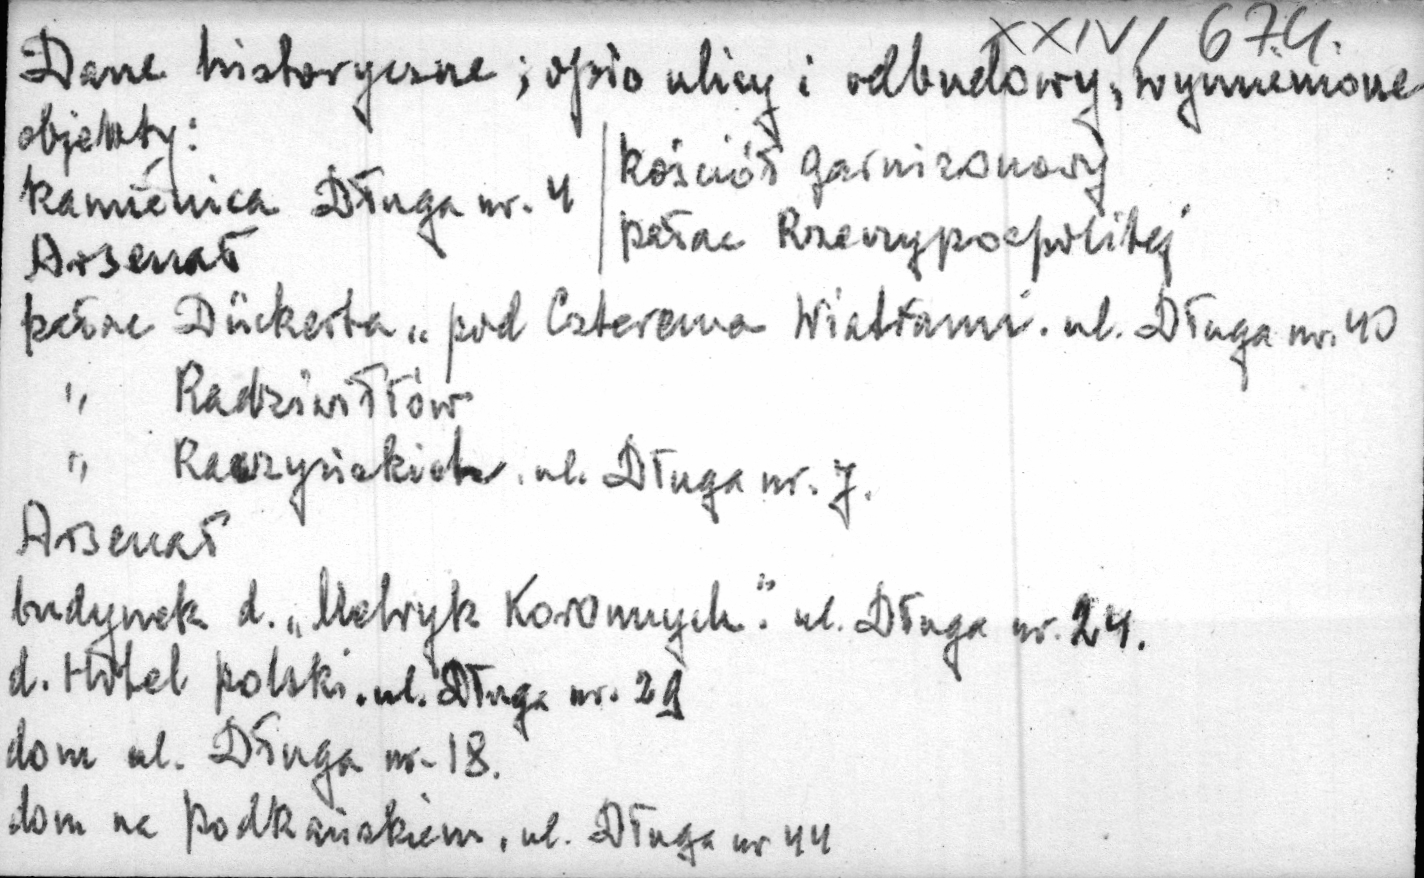 XXIV/ 674.
Dane historyczne; opis ulicy i odbudowy, wymienione
objekty:
kamienica Długa nr. 4
Arsenał
kościół garnizonowy
pałac Rzeczypospolitej
pałac Dückerta „pod Czterema Wiatrami. ul. Długa nr. 40
" Radziwiłłów
" Raczyńskich. ul. Długa nr. 7.
Arsenał
budynek d. „Metryk Koronnych". ul. Długa nr. 24.
d. Hotel polski. ul. Długa nr. 29
dom ul. Długa nr. 18.
dom na Podkańskiem. ul. Długa nr 44